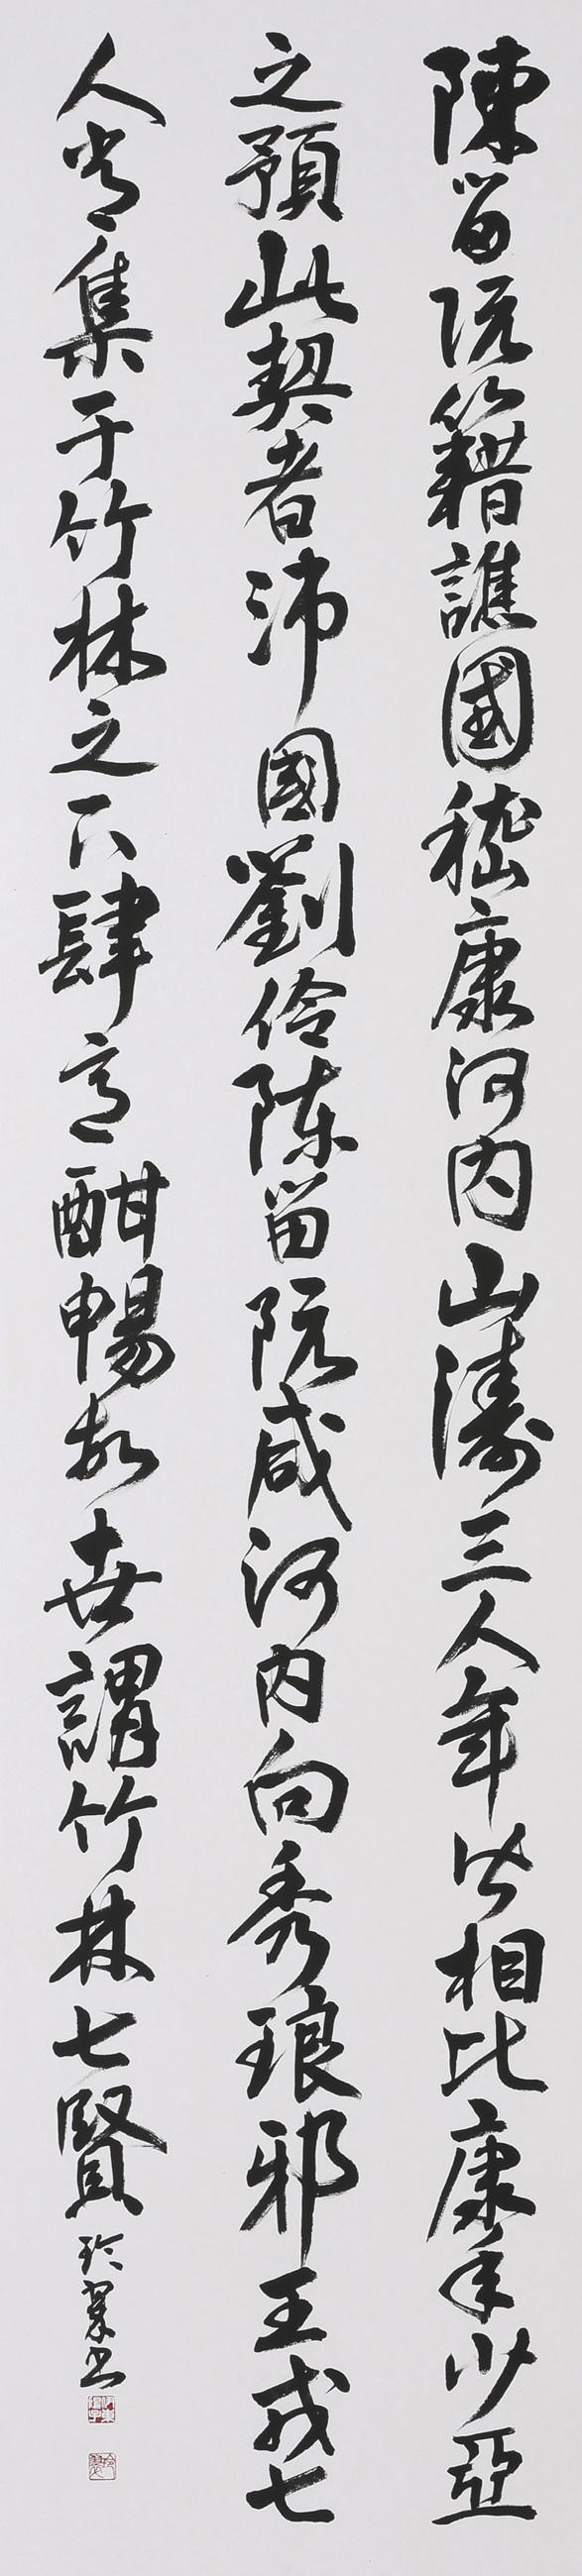 陳留阮籍譙國嵇康河内山濤三人年皆相比康年少亞
之預此契者沛國劉伶陳留阮咸河内向秀琅邪王戎七
人常集于竹林之下肆意酣暢故世謂竹林七賢 玲翠書